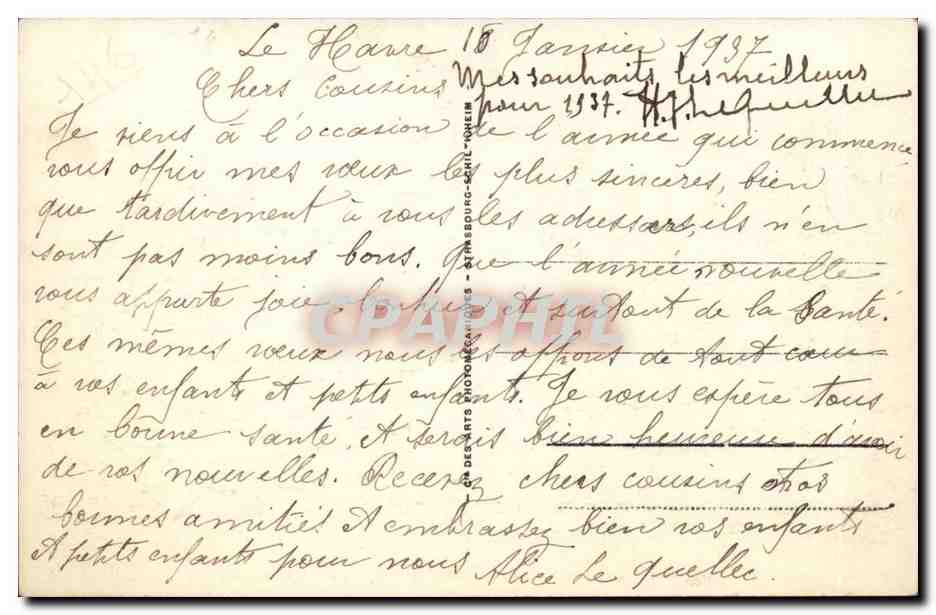 Le Havre 18 Janvier 1937
Chers Cousins
Mes souhaits les meilleurs
pour 1937. H. J. Le Quellec
Je viens à l'occasion de l'année qui commence
vous offrir mes vœux les plus sincères, bien
que tardivement à vous les adresser, ils n'en
sont pas moins bons. Que l'année nouvelle
vous apporte joie, bonheur et surtout de la Santé.
Ces mêmes vœux nous les offrons de tout cœur
à vos enfants et petits enfants. Je vous espère tous
en bonne santé, et serais bien heureuse d'avoir
de vos nouvelles. Recevez chers cousins nos
bonnes amitiés et embrassez bien vos enfants
et petits enfants pour nous Alice Le Quellec.
CIE DES ARTS PHOTOMÉCANIQUES - STRASBOURG-SCHILTIGHEIM
CPAPHIL